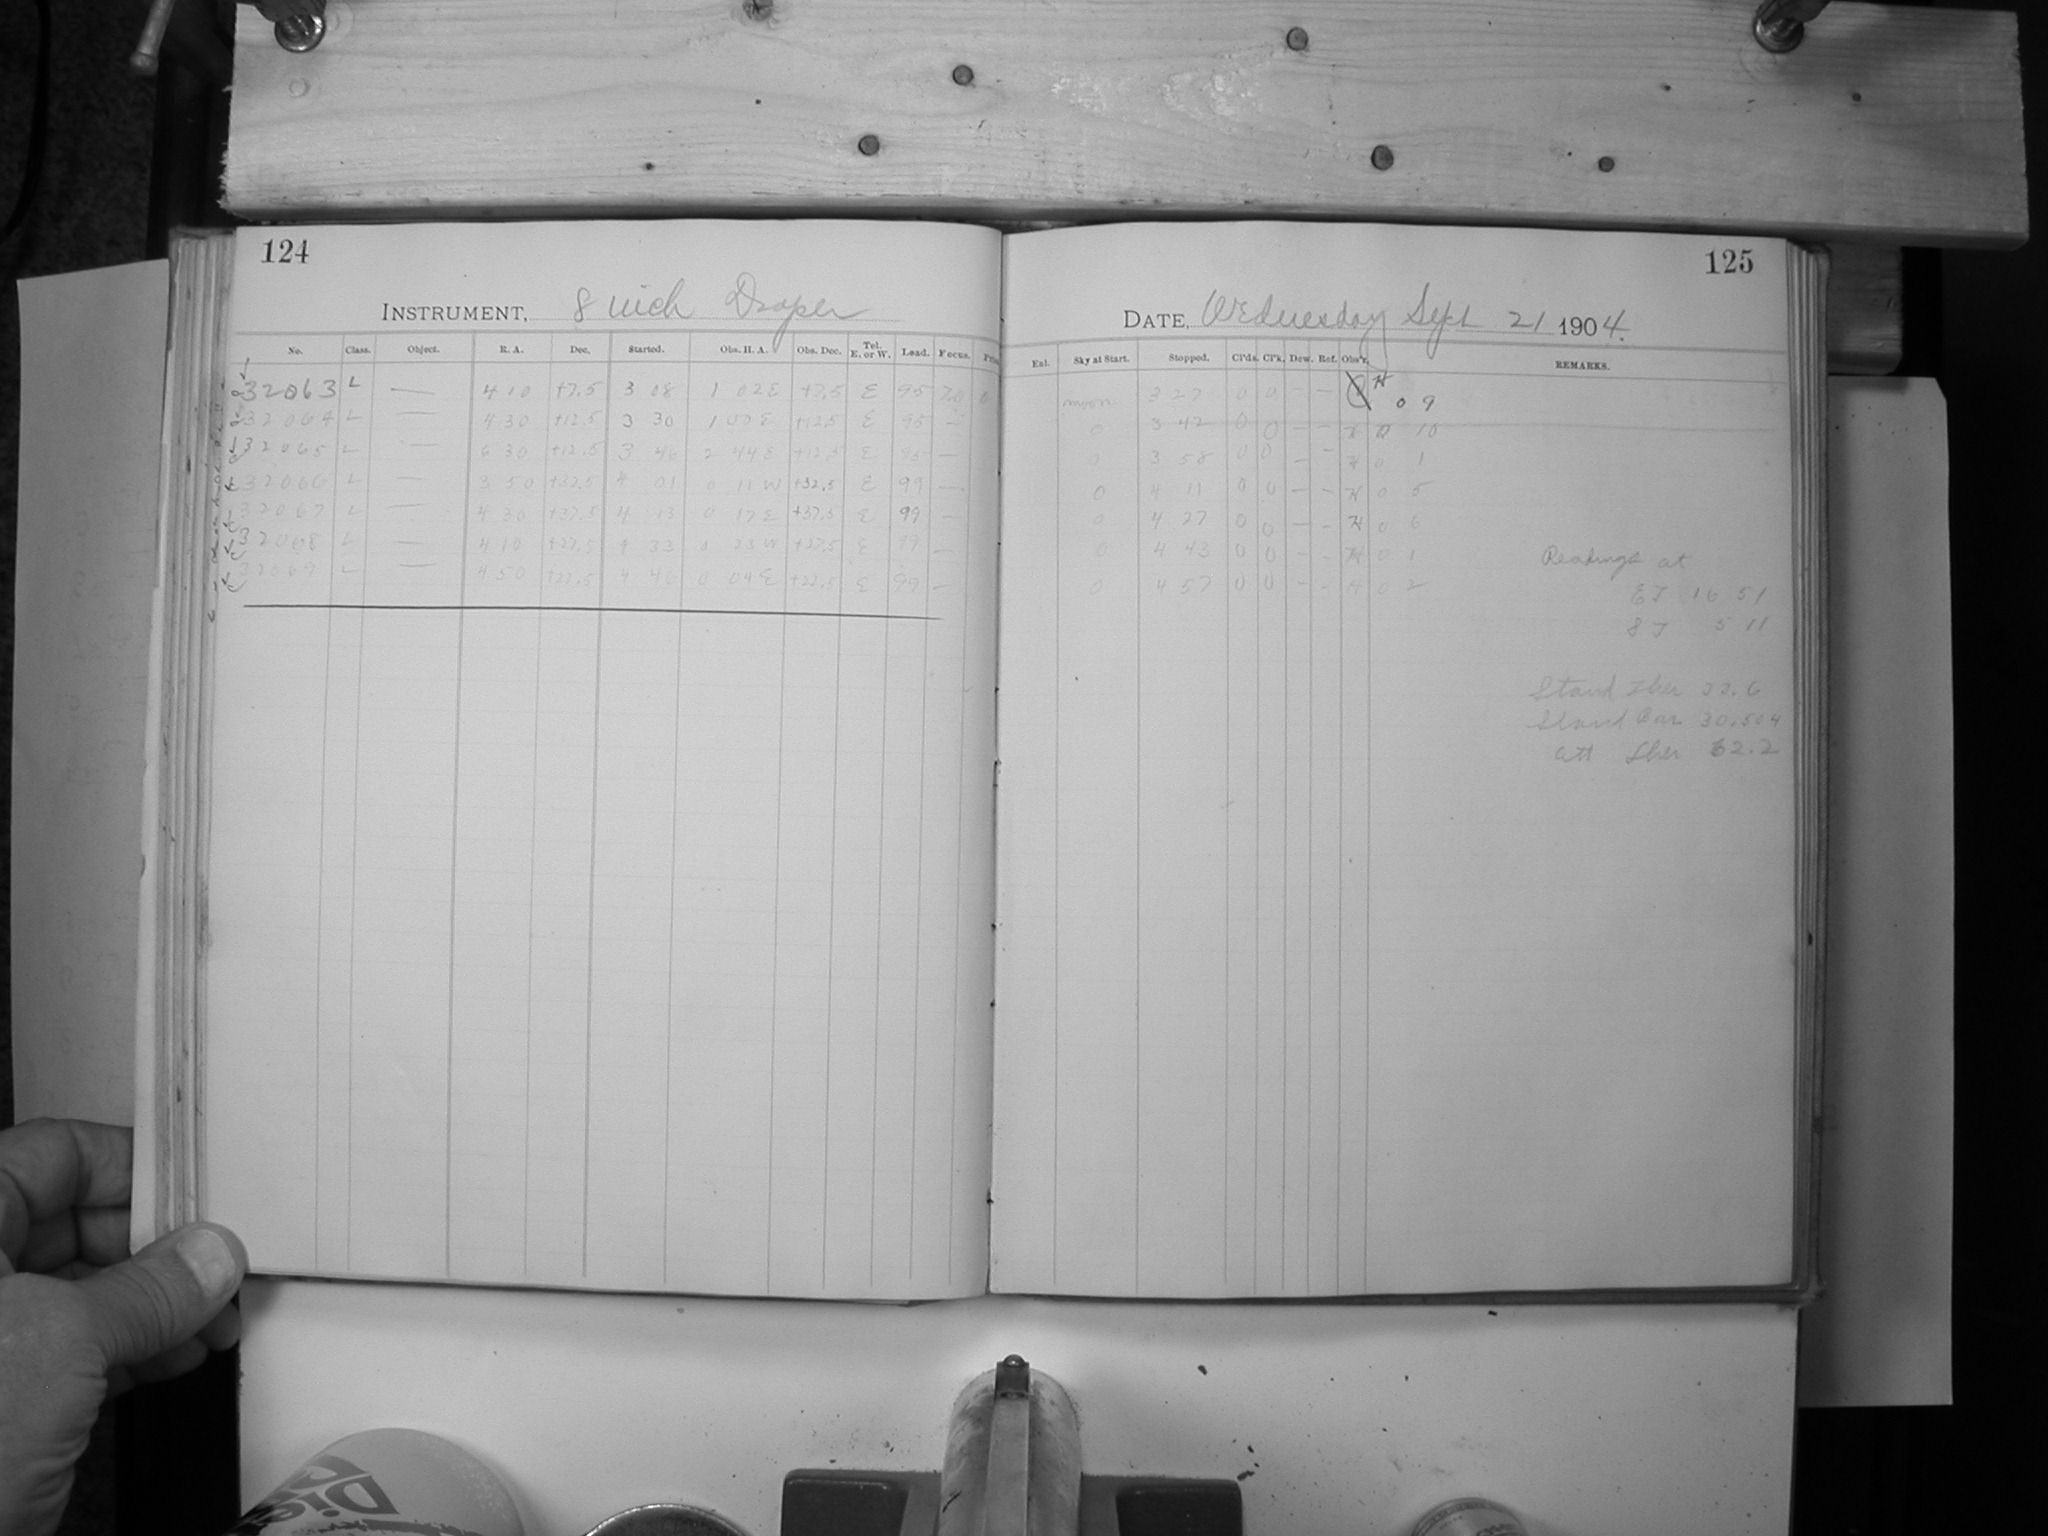 124
INSTRUMENT, 8 inch Draper
No. Class. Object. R. A. Dec. Started. Obs. H. A. Obs. Dec. Tel. E. or W. Load. Focus.
32063 L — 4 10 +7.5 3 08 1 02 E +7.5 E 95 7.0 0
32064 L — 4 30 +12.5 3 30 1 07 E +12.5 E 95 —
32065 L — 6 30 +12.5 3 46 2 44 E +12.5 E 95 —
32066 L — 3 50 +32.5 4 01 0 11 W +32.5 E 99 —
32067 L — 4 30 +37.5 4 13 0 17 E +37.5 E 99 —
32068 L — 4 10 +27.5 4 33 0 23 W +27.5 E 99 —
32069 L — 4 50 +22.5 4 46 0 04 E +22.5 E 99 —
125
DATE, Wednesday Sept 21 1904.
Exl. Sky at Start. Stopped. Cl'ds. Cl'k. Dew. Ref. Obs'r. REMARKS.
moon 3 27 0 0 — — H 0 9
0 3 42 0 0 — — H 0 10
0 3 58 0 0 — — H 0 1
0 4 11 0 0 — — H 0 5
0 4 27 0 0 — — H 0 6
0 4 43 0 0 — — H 0 1
0 4 57 0 0 — — H 0 2
Readings at
ET 16 51
ST 5 11
Stand Ther 33.6
Stand Bar 30.504
Att Ther 62.2